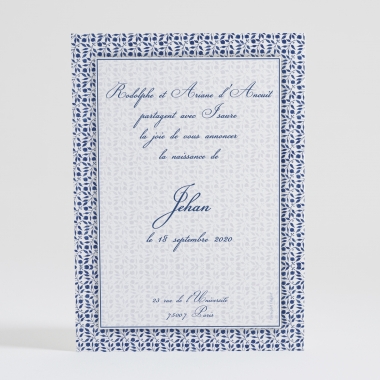 Rodolphe et Ariane d'Aneuil
partagent avec Isaure
la joie de vous annoncer
la naissance de
Jehan
le 18 septembre 2020
25 rue de l'Université
75007 Paris